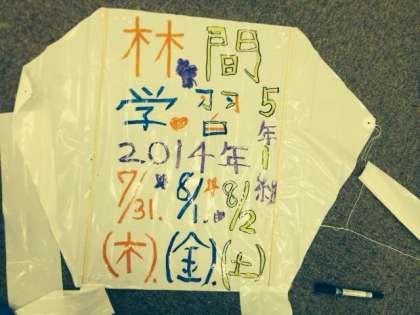 林間
学習
5年1組
2014年
7/31. 8/1. 8/2
(木).(金).(土)